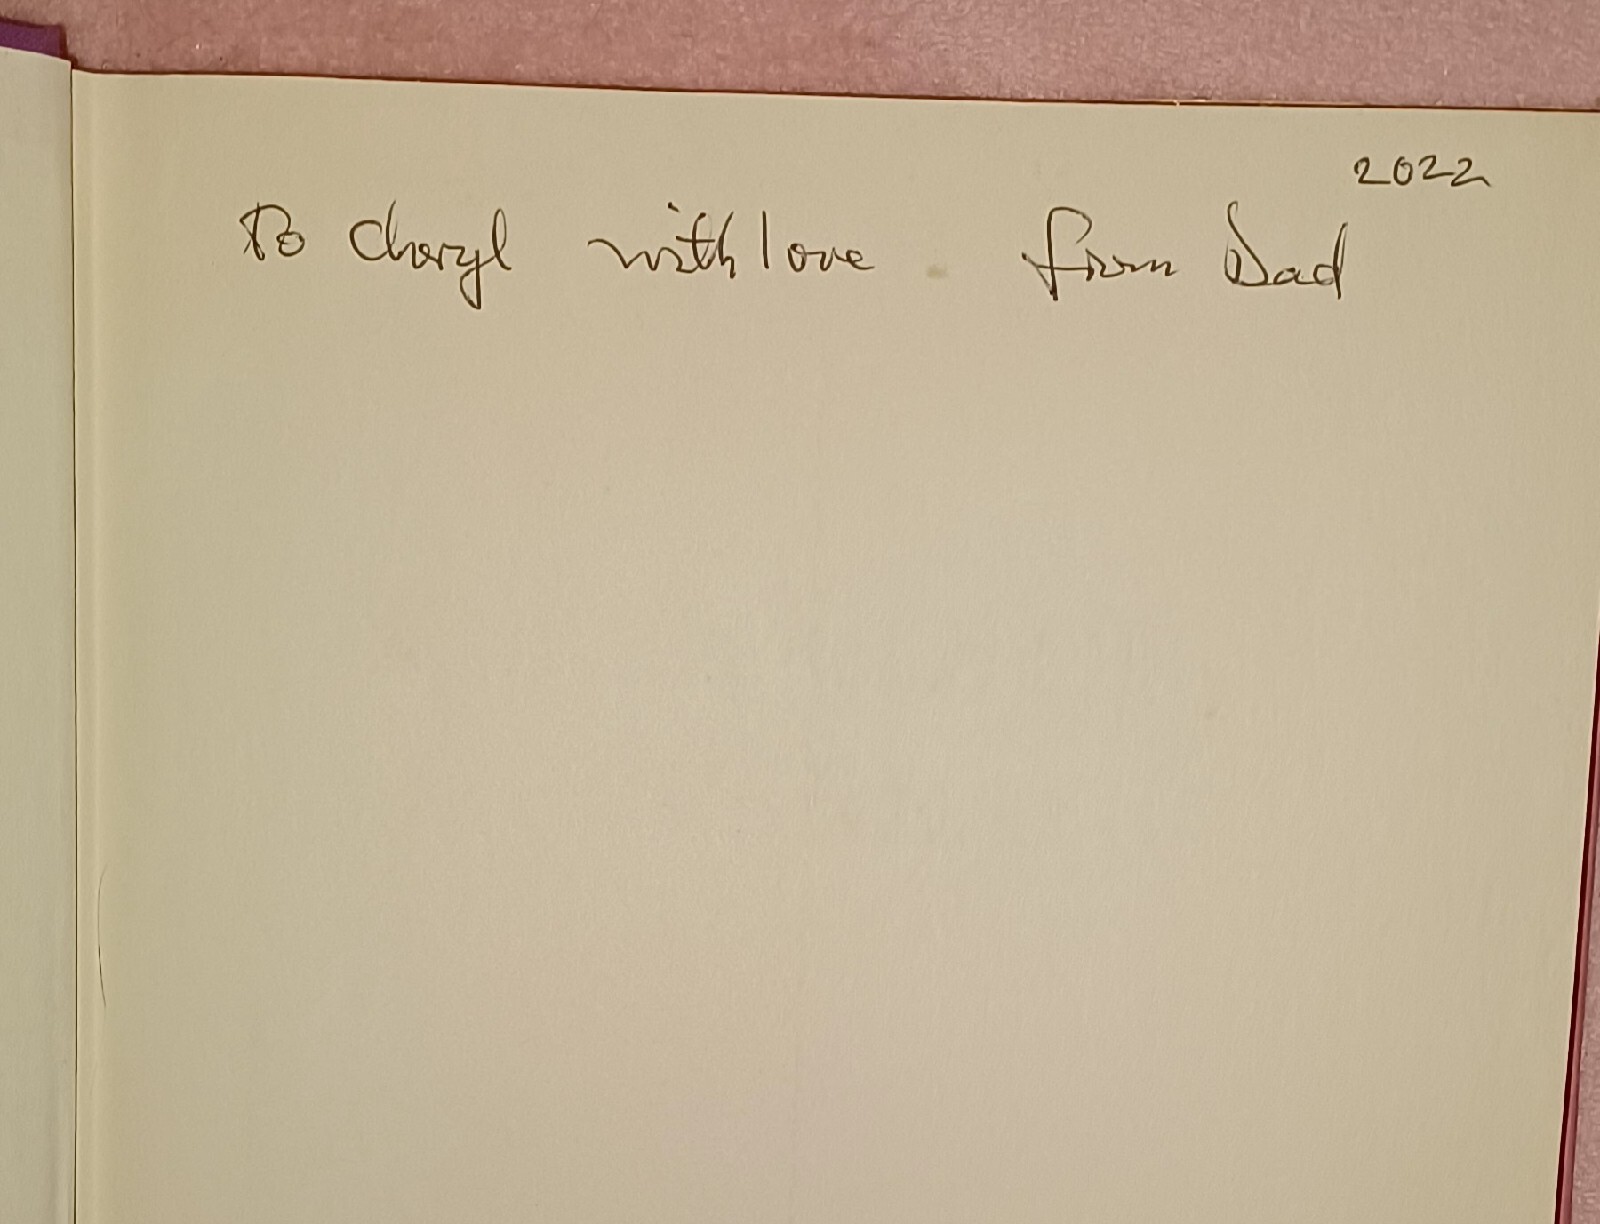 2022
To Cheryl with love . from Dad